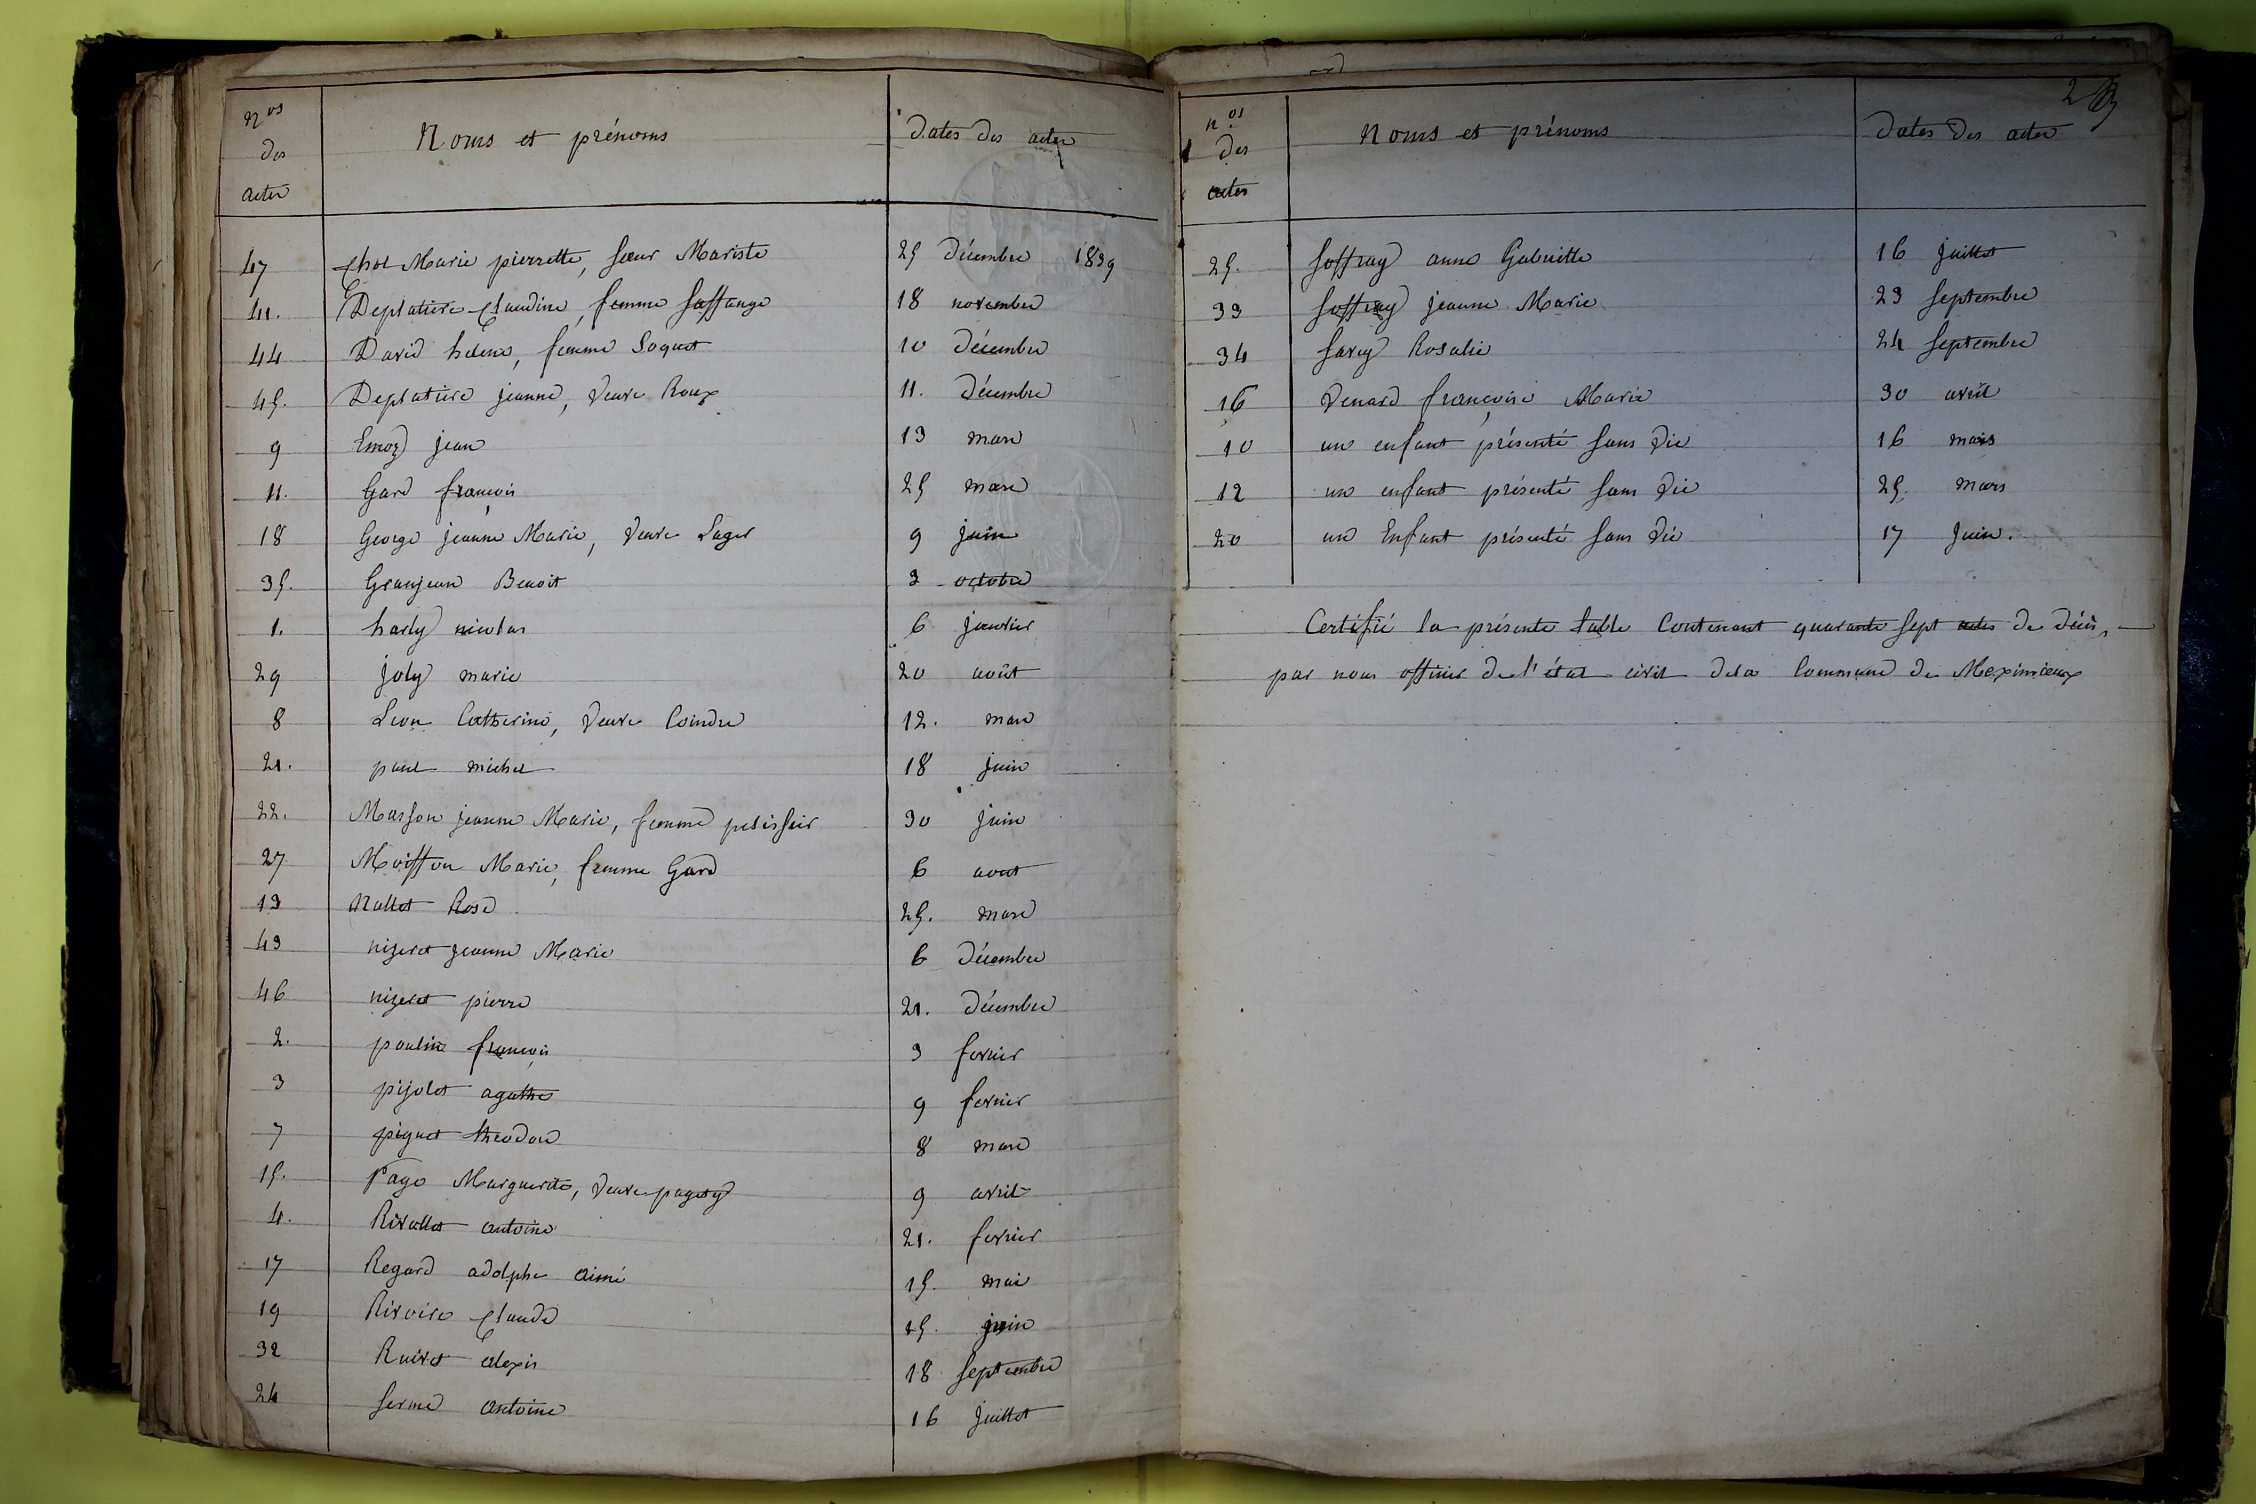 Nos des actes Noms et prénoms Dates des actes
47 Chol Marie pierrette, Sœur Mariste 25 Décembre 1839
41. Deplatière Claudine, femme Saffange 18 novembre
44 David helene, femme Soquet 10 Décembre
45. Deplatière jeanne, Veuve Roux 11. Décembre
9 Emoz jean 13 mars
11. Gard françois 25 mars
18 George jeanne Marie, Veuve Lager 9 juin
35. Granjean Benoit 3 octobre
1. harly nicolas 6 janvier
29 joly marie 20 août
8 Leon Catherine, Veuve Coindre 12. mars
21. paul michel 18 juin
22. Masson jeanne Marie, femme 30 juin
27 Moiffon Marie, femme Gard 6 aout
13 Nallet Rose 25. mars
43 nizeret jeanne Marie 6 Décembre
46 nizeret pierre 21. Décembre
2. poulin françois 3 fevrier
3 pijolet agathe 9 fevrier
7 piguet theodore 8 mars
15. Page Marguerite, Veuve pagety 9 avril
4. Rivollet antoine 21. fevrier
17 Regard adolphe aimé 15. mai
19 Rivoire Claude 15. juin
32 Ruivet alexis 18 Septembre
24 Serme antoine 16 juillet
nos Des actes Noms et prénoms Dates Des actes
25. Soffray anne Gabrielle 16 juillet
33 Soffray jeanne Marie 23 Septembre
34 Savey Rosalie 24 Septembre
16 Venard françoise Marie 30 avril
10 un enfant présenté Sans Vie 16 mars
12 un enfant présenté Sans Vie 25. mars
20 un Enfant présenté Sans Vie 17 juin.
Certifié la présente table Contenant quarante Sept actes de Décès,
par nous officier de l'état civil dela Commune de Meximieux